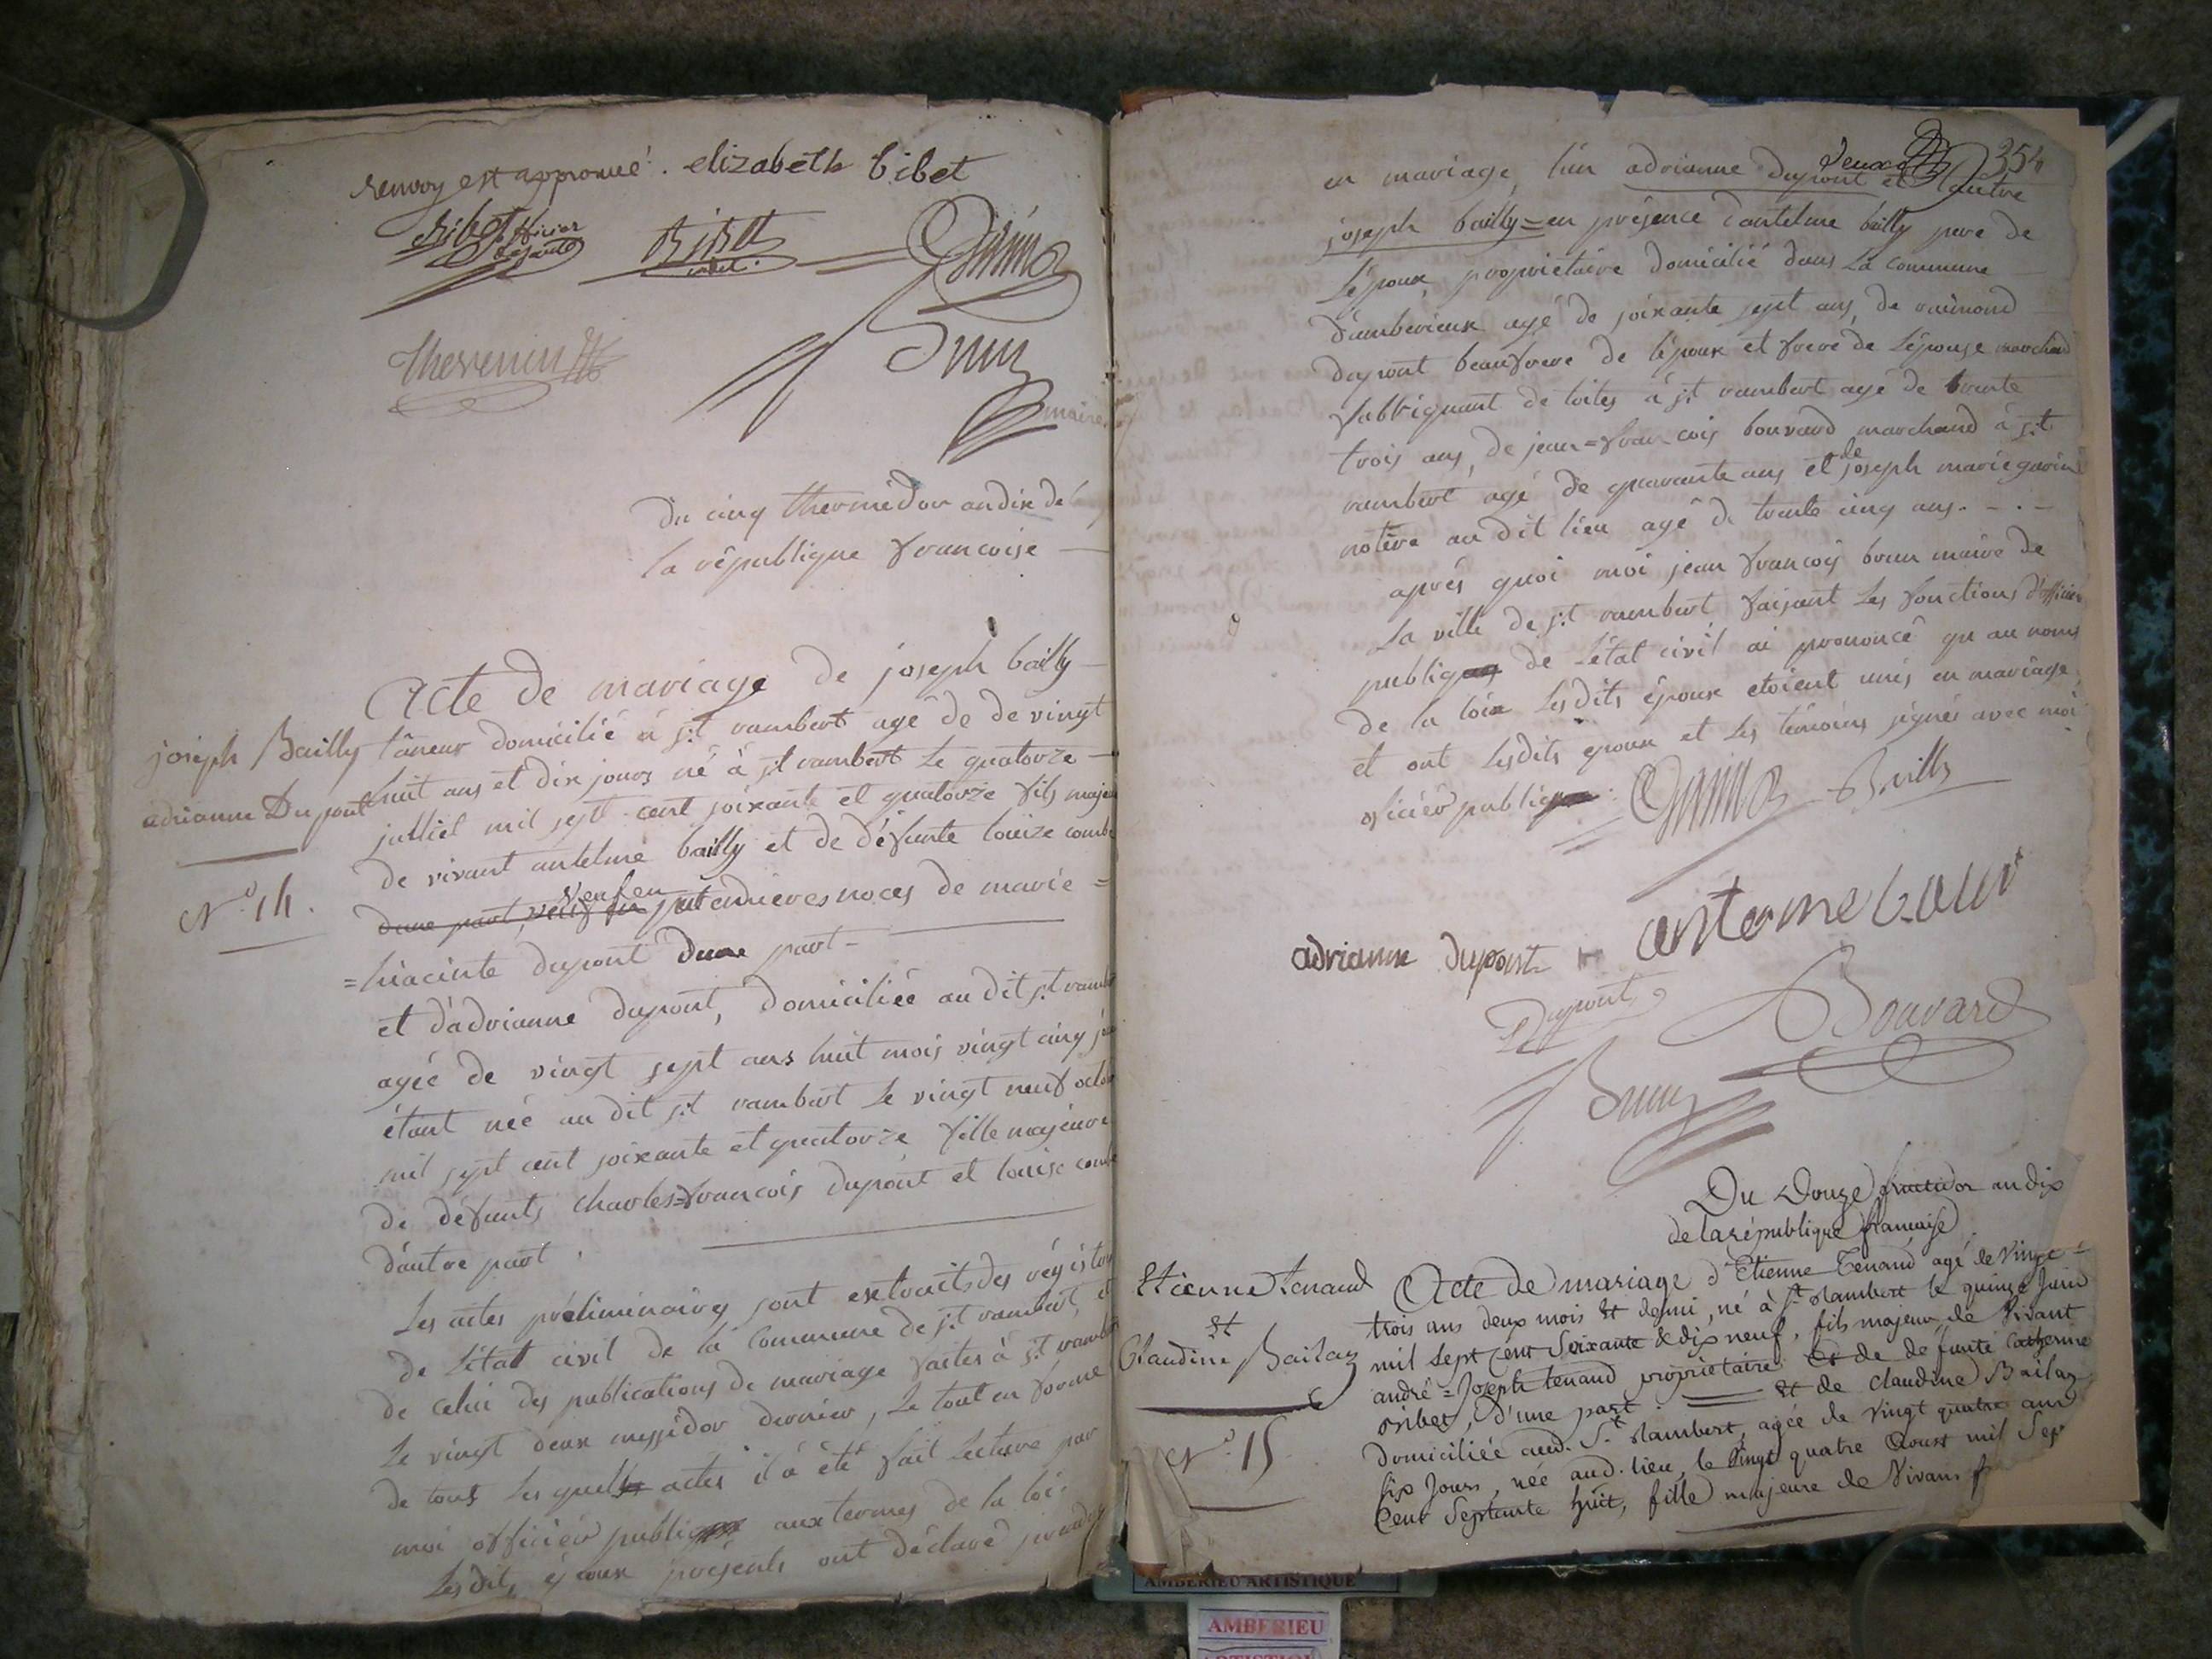 renvoy est approuvé. elizabeth bibet
Thevenin
maire
du cinq thermidor an dix de
la république francoise
joseph Bailly
adrianne Dupont
N.o 14.
Acte de mariage de joseph bailly
tâneur domicilié à s.t rambert agé de de vingt
huit ans et dix jours né à s.t rambert le quatorze
julliet mil sept cent soixante et quatorze fils majeu
de vivant antelme bailly et de défunte louize combe
veuf en
d'une part, veuf en premieres noces de marie =
= hiacinte dupont d'une part
et d'adrianne dupont, domiciliée au dit s.t rambe
agée de vingt sept ans huit mois vingt cinq jou
étant née au dit s.t rambert le vingt neuf octob
mil sept cent soixante et quatorze fille majeure
de défunts charles=francois dupont et louise combe
d'autre part.
Les actes préliminaires sont extraits des régistre
de l'état civil de la commune de s.t rambert, et
de celui des publications de mariage faites à s.t rambe
le vingt deux messidor dernier, le tout en forme
de tous lesquels actes il a été fait lecture par
moi officier public aux termes de la loi.
Lesdits époux présents ont déclaré prendre
354
en mariage, l'un adrianne dupont et l'autre
joseph bailly = en présence d'antelme bailly pere de
l'époux, propriétaire domicilié dans la commune
d'amberieux agé de soixante sept ans, de raimond
dupont beaufrere de l'époux et frere de l'épouse marchand
fabbriquant de toiles à s.t rambert agé de trente
trois ans, de jean=francois bouvard marchand à s.t
rambert agé de quarante ans et de joseph marie garin
notere au dit lieu agé de trente cinq ans. - . -
après quoi moi jean francois brun maire de
la ville de s.t rambert, faisant les fonctions d'officier
public de l'état civil ai prononcé qu'au noms
de la loix lesdits époux etoient unis en mariage,
et ont lesdits epoux et les témoins signés avec moi
oficièr public
Bailly
adrianne dupont
Dupont
Bouvard
Brun
Du Douze fructidor an dix
de la république française
Etienne tenand
et
Claudine Bailay
N.o 15
Acte de mariage d'Etienne Tenand agé de vingt =
trois ans deux mois et demi, né à S.t Rambert le quinze Juin
mil sept cent soixante & dix neuf, fils majeur de Vivant
andré = Joseph tenand propriétaire et de defunte Catherine
bribet, d'une part. et de claudine Bailay
domiciliée aud. S.t Rambert, agée de vingt quatre ans
six Jours, née aud. lieu, le vingt quatre Aoust mil Sep
Cent Septante huit, fille majeure de Vivans f
AMBERIEU ARTISTIQUE
AMBERIEU